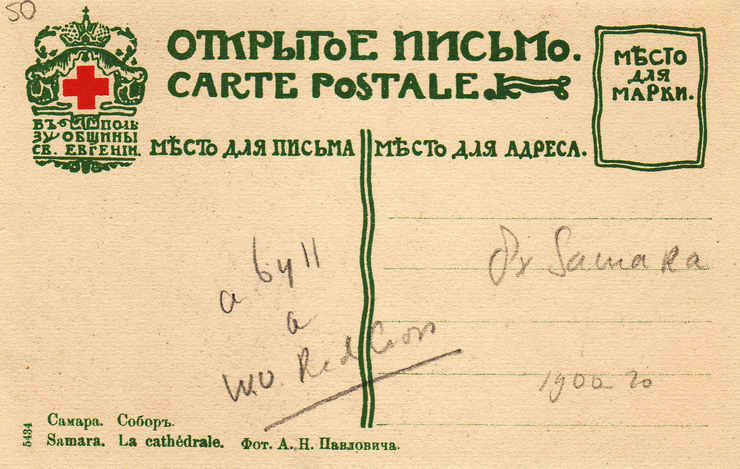 50
ОТКРЫТОЕ ПИСЬМО.
CARTE POSTALE.
МѢСТО
ДЛЯ
МАРКИ.
ВЪ ПОЛЬ
ЗУ ОБЩИНЫ
СВ. ЕВГЕНІИ.
МѢСТО ДЛЯ ПИСЬМА
МѢСТО ДЛЯ АДРЕСА.
a
a
Red Cross
Samara
1900
5434
Самара. Соборъ.
Samara. La cathédrale. Фот. А. Н. Павловича.